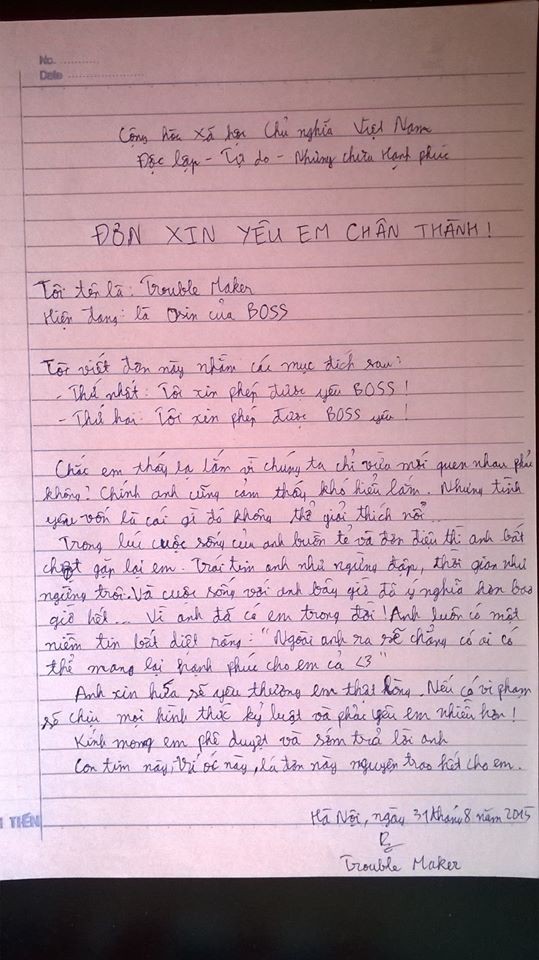 No. ............
Date ........................
Cộng hòa xã hội Chủ nghĩa Việt Nam
Độc lập - Tự do - Nhưng chưa Hạnh phúc
ĐƠN XIN YÊU EM CHÂN THÀNH!
Tôi tên là: Trouble Maker
Hiện đang: là Osin của BOSS
Tôi viết đơn này nhằm các mục đích sau:
- Thứ nhất: Tôi xin phép được yêu BOSS!
- Thứ hai: Tôi xin phép được BOSS yêu!
Chắc em thấy lạ lắm vì chúng ta chỉ vừa mới quen nhau phải
không? Chính anh cũng cảm thấy khó hiểu lắm. Nhưng tình
yêu vốn là cái gì đó không thể giải thích nổi...
Trong lúc cuộc sống của anh buồn tẻ và đơn điệu thì anh bất
chợt gặp lại em. Trai tim anh như ngừng đập, thời gian như
ngừng trôi. Và cuộc sống với anh bây giờ đã ý nghĩa hơn bao
giờ hết... Vì anh đã có em trong đời! Anh luôn có một
niềm tin bất diệt rằng: "Ngoài anh ra sẽ chẳng có ai có
thể mang lại hạnh phúc cho em cả <3"
Anh xin hứa sẽ yêu thương em thật lòng. Nếu có vi phạm
sẽ chịu mọi hình thức kỷ luật và phải yêu em nhiều hơn!
Kính mong em phê duyệt và sớm trả lời anh
Con tim này, trí óc này, lá đơn này nguyện trao hết cho em.
TIẾN
Hà Nội, ngày 31 tháng 8 năm 2015
Trouble Maker